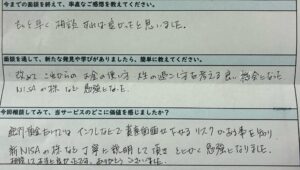 今までの面談を終えて、率直なご感想を教えてください。
もっと早く相談すれば良かったと思いました。
面談を通して、新たな発見や学びがありましたら、簡単に教えてください。
改めてこれからのお金の使い方、人生の過ごし方を考える良い機会となった
NISAの株など勉強になった。
今回相談してみて、当サービスのどこに価値を感じましたか?
銀行預金だけではインフレなどで資産価値が下がるリスクがある事を知り
新NISAの株など丁寧に説明して頂きとても勉強になりました。
相談してホントに良かったです。ありがとうございました。